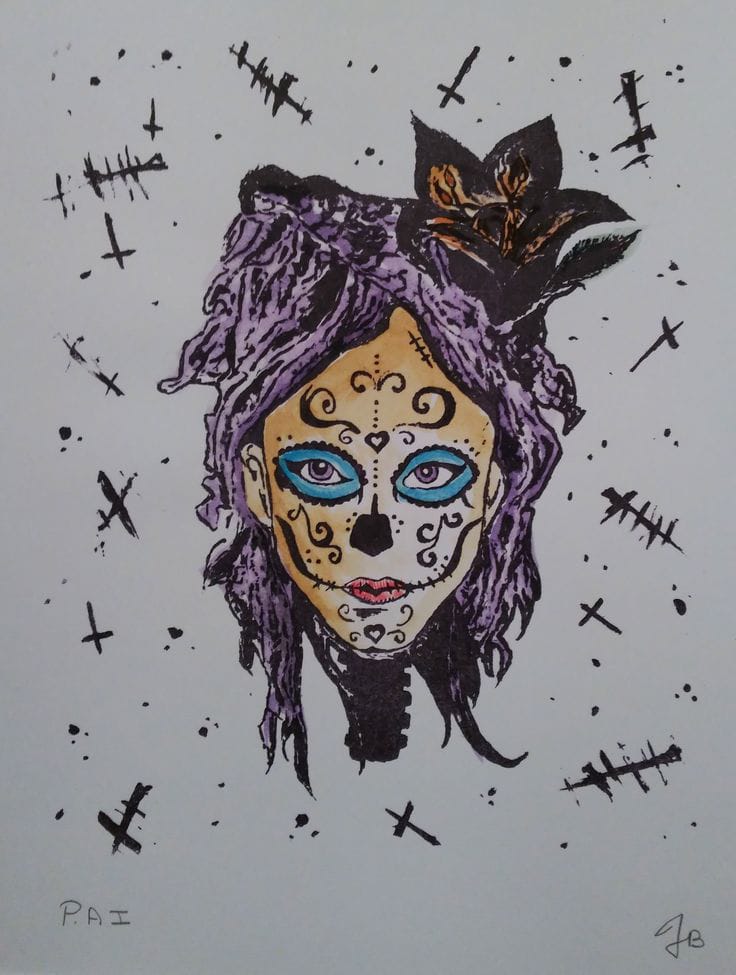 P.A I
JB